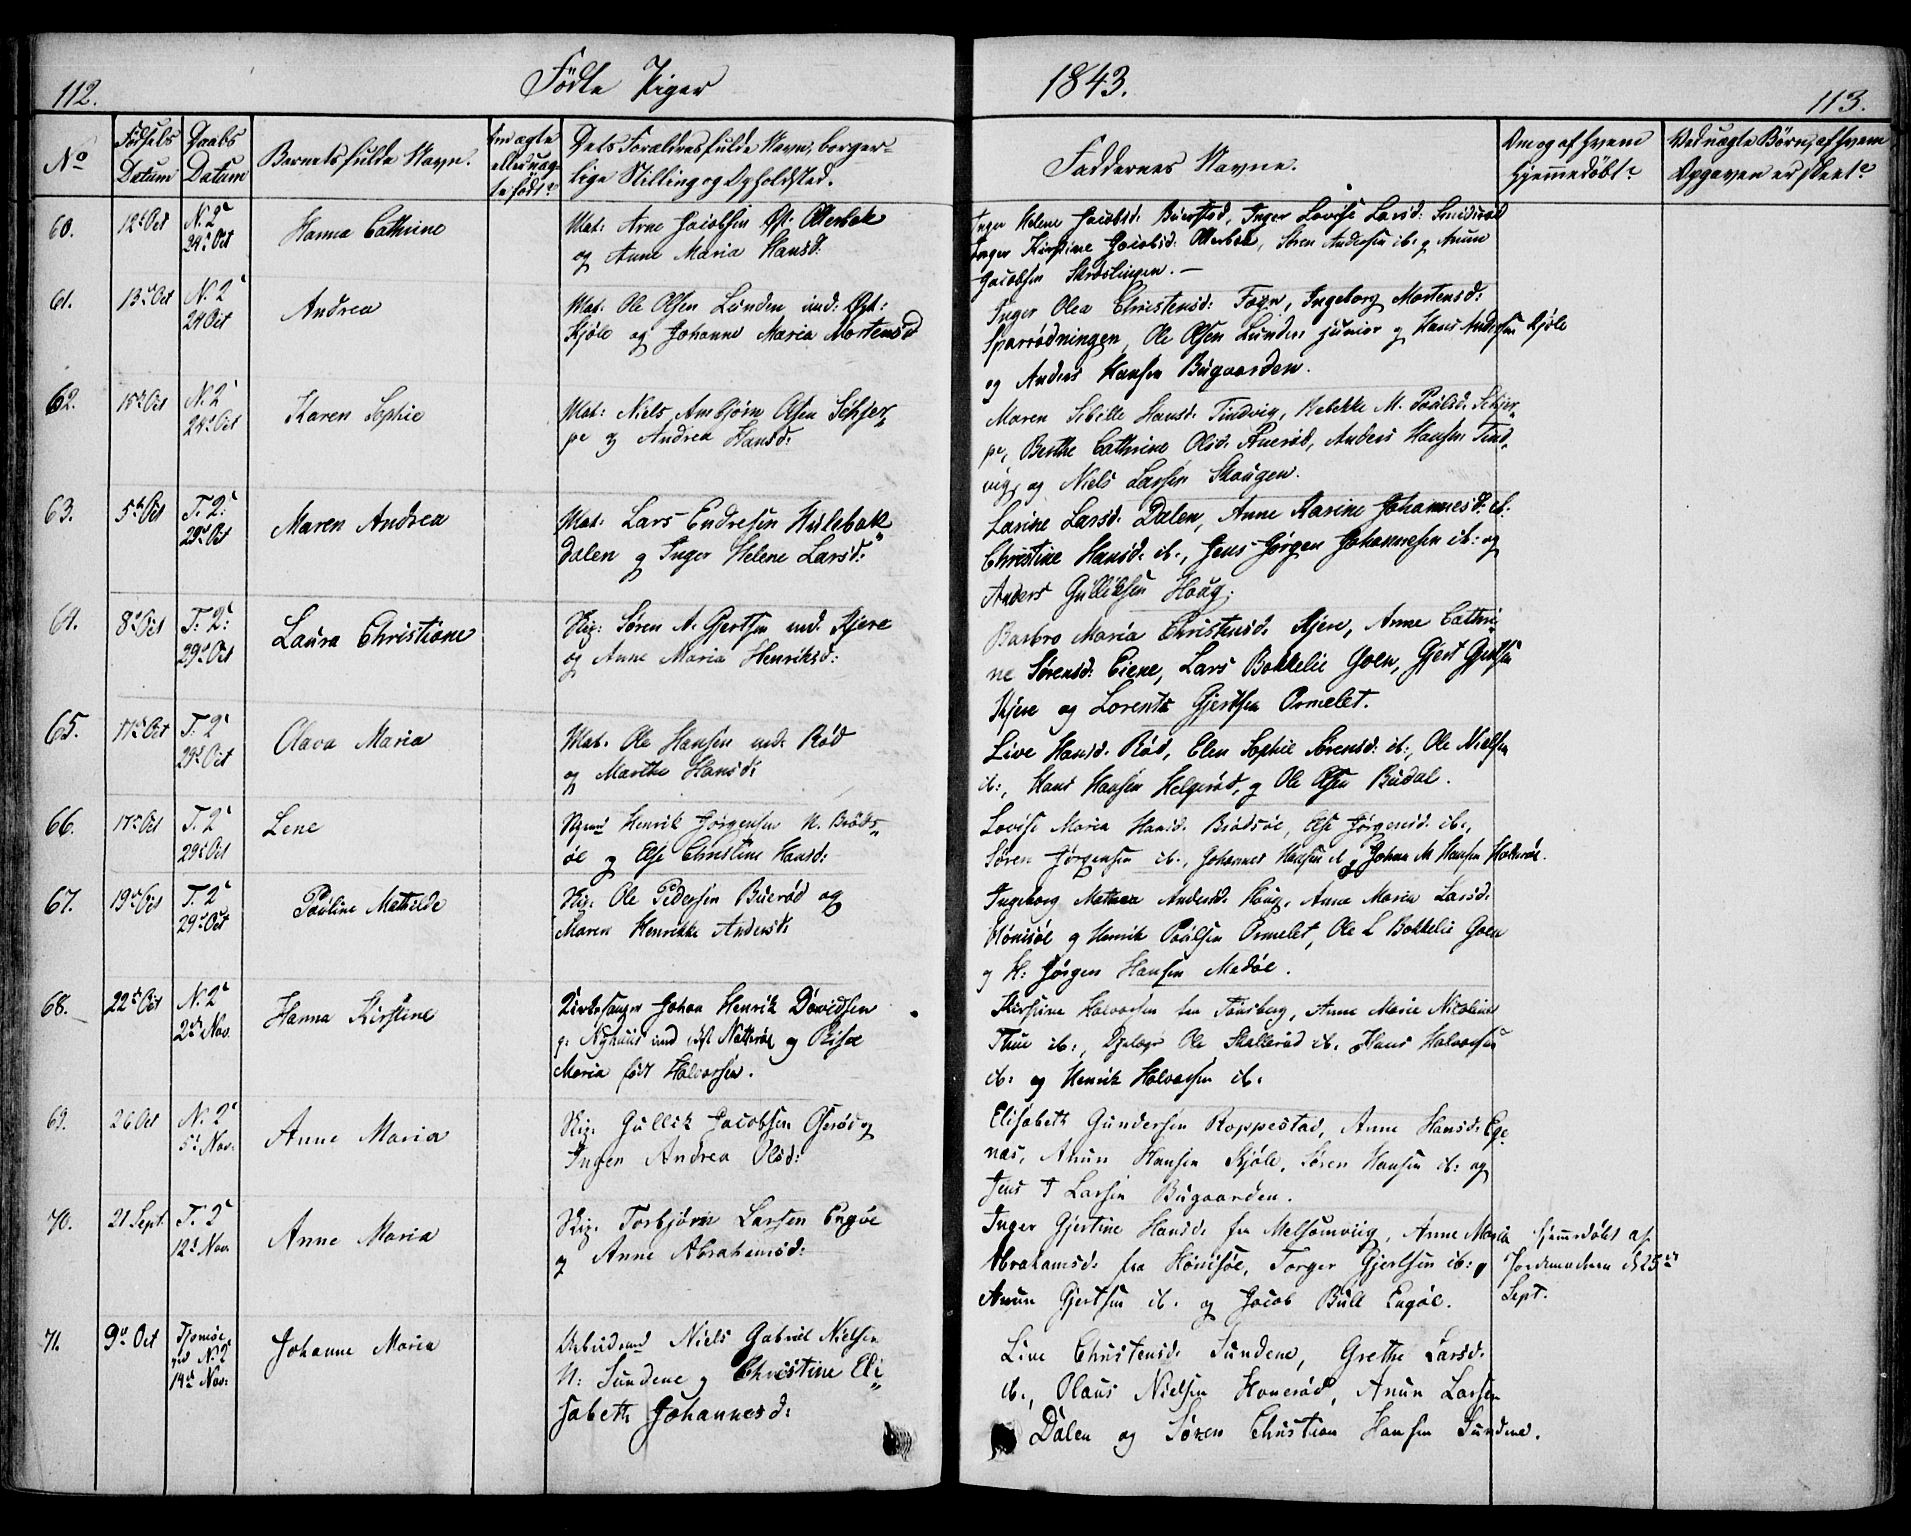 112. Födte Piger
1843. 113.
No
Födsels Datum
Daabs Datum
Barnets fulde Navn.
Om ægte eller uægte født?
Dets Forældres fulde Navn, borgerlige Stilling og Opholdsted.
Faddernes Navne.
Om og af hvem hjemmedöbt?
Ved uægte Börn, af hvem Opgaven er skeet?
60. 12t Oct N. 2 24 Oct Hanna Cathrine
Mat: Arne Jacobsen Otterbek
og Anne Maria Hansd:
Inger Helene Jacobsd: Buerstad, Inger Lovise Larsd:
Inger Kirstine Jacobsd: Otterbek, Sören Andersen ib: og Anun
Jacobsen
61. 13 Oct N. 2 24 Oct Andrea
Mat: Ole Olsen Lunden und:
Kjöle og Johanne Maria Mortensd
Inger Olea Christensd: Föyn, Ingeborg Mortensd:
Sparrödningen, Ole Olsen Lunden junior og Hans Andersen Kjöle
og Anders Hansen Bugaarden.
62. 15t Oct N. 2 24 Oct Karen Sophie
Mat: Niels Ambjörn Olsen Schjer„
pe og Andrea Hansd:
Maren Sibille Hansd: Tindvig, Rebekke M. Paulsd: Schjer„
pe, Berthe Cathrine Olsd: Bueröd, Anders Hansen Tind„
vig, og Niels Larsen Skougen.
63. 5t Oct T. 2: 29 Oct Maren Andrea
Mat: Lars Endresen Hulebak„
dalen og Inger Helene Larsd:
Larine Larsd: Dalen, Anne Karine Johannesd: ib:
Christine Hansd: ib:, Jens Jörgen Johannesen ib: og
Anders Gulliksen Houg.
64. 8 Oct T. 2: 29 Oct Laura Christiane
Skip: Sören A. Gjertsen und. Kjere
og Anne Maria Henriksd:
Barbro Maria Christensd: Kjere, Anne Cathri„
ne Sörensd: Eiene, Lars Bokkelie Goen, Gjert Gjertsen
Kjere og Lorentz Gjertsen Ormelet.
65. 17 Oct T. 2 29 Oct Olava Maria
Mat. Ole Hansen und. Röd
og Marthe Hansd:
Live Hansd: Röd, Elen Sophie Sörensd: ib:, Ole Nielsen
ib:, Hans Hansen Helgeröd, og Ole Olsen Budal.
66. 17 Oct T. 2 29 Oct Lene
Henrik Jörgensen N. Bröds„
öe og Else Christine Hansd:
Lovise Maria Hansd: Brödsöe, Else Jörgensd: ib:,
Sören Jörgensen ib:, Johannes Hansen ib og Johan M Hansen
67. 19 Oct T. 2 29 Oct Pauline Mathilde
Skip. Ole Pedersen Bueröd og
Maren Henrikke Andersd:
Ingeborg Andersd: Houg, Anne Maria Larsd:
Hönisöe og Henrik Paulsen Ormelet, Ole L Bokkelie Goen
og H: Jörgen Hansen Medöe.
68. 22 Oct N. 2 2 Nov. Hanna Kirstine
Kirkesanger Johan Henrik Davidsen
Nyhuus und Nötteröe og
Maria født Halvorsen.
Kirstine Halvorsen fra Tönsberg, Anne Marie Nicoline
Thue ib:, Ole Skalleröd ib. Hans Halvorsen
ib: og Henrik Halvorsen ib:
69. 26 Oct N. 2 5 Nov. Anne Maria
Skip. Gullik Jacobsen Oseröd og
Inger Andrea Olsd:
Elisabeth Gundersen Roppestad, Anne Hansd: Ege„
næs, Anun Hansen Kjöle, Sören Hansen ib: og
Jens T Larsen Bugaarden.
70. 21 Sept. T. 2 12 Nov. Anne Maria
Skip. Torbjörn Larsen Engöe
og Anne Abrahamsd:
Inger Gjertine Hansd: fra Melsomviig, Anne Maria
Abrahamsd: fra Hönisöe, Torger Gjertsen ib: og
Anun Gjertsen ib. og Jacob Bull Engöe.
Hjemmedöbt af
Jordemoderen d 25
Sept.
71. 9 Oct Tjomöe ved N. 2 14 Nov. Johanne Maria
Arbeidsmd Niels Gabriel Nielsen
N: Sundene og Christine Eli„
sabeth Johannesd:
Line Christensd: Sundene, Grethe Larsd:
ib:, Olaus Nielsen Honeröd, Anun Larsen
Dalen og Sören Christian Hansen Sundene.